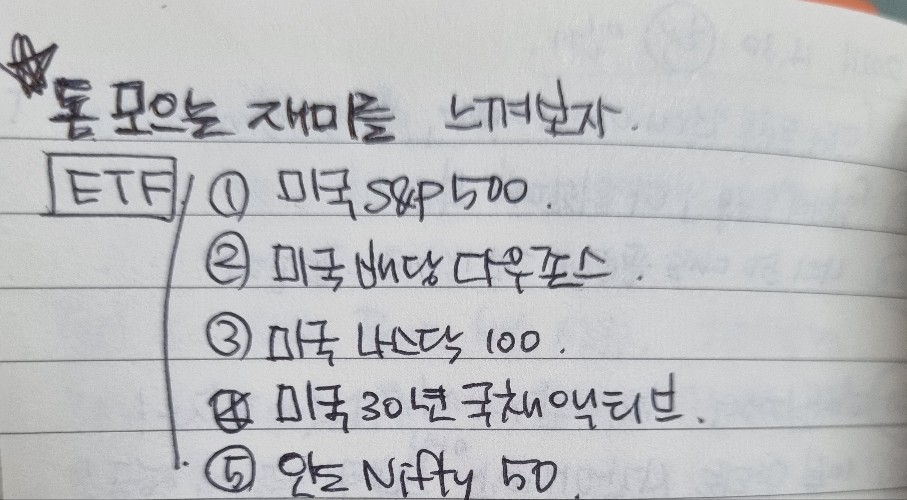 톰 모으는 재미를 느껴보자.
ETF ① 미국 S&P 500.
② 미국 배당 다우존스.
③ 미국 나스닥 100.
④ 미국 30년 국채액티브.
⑤ 인도 Nifty 50.